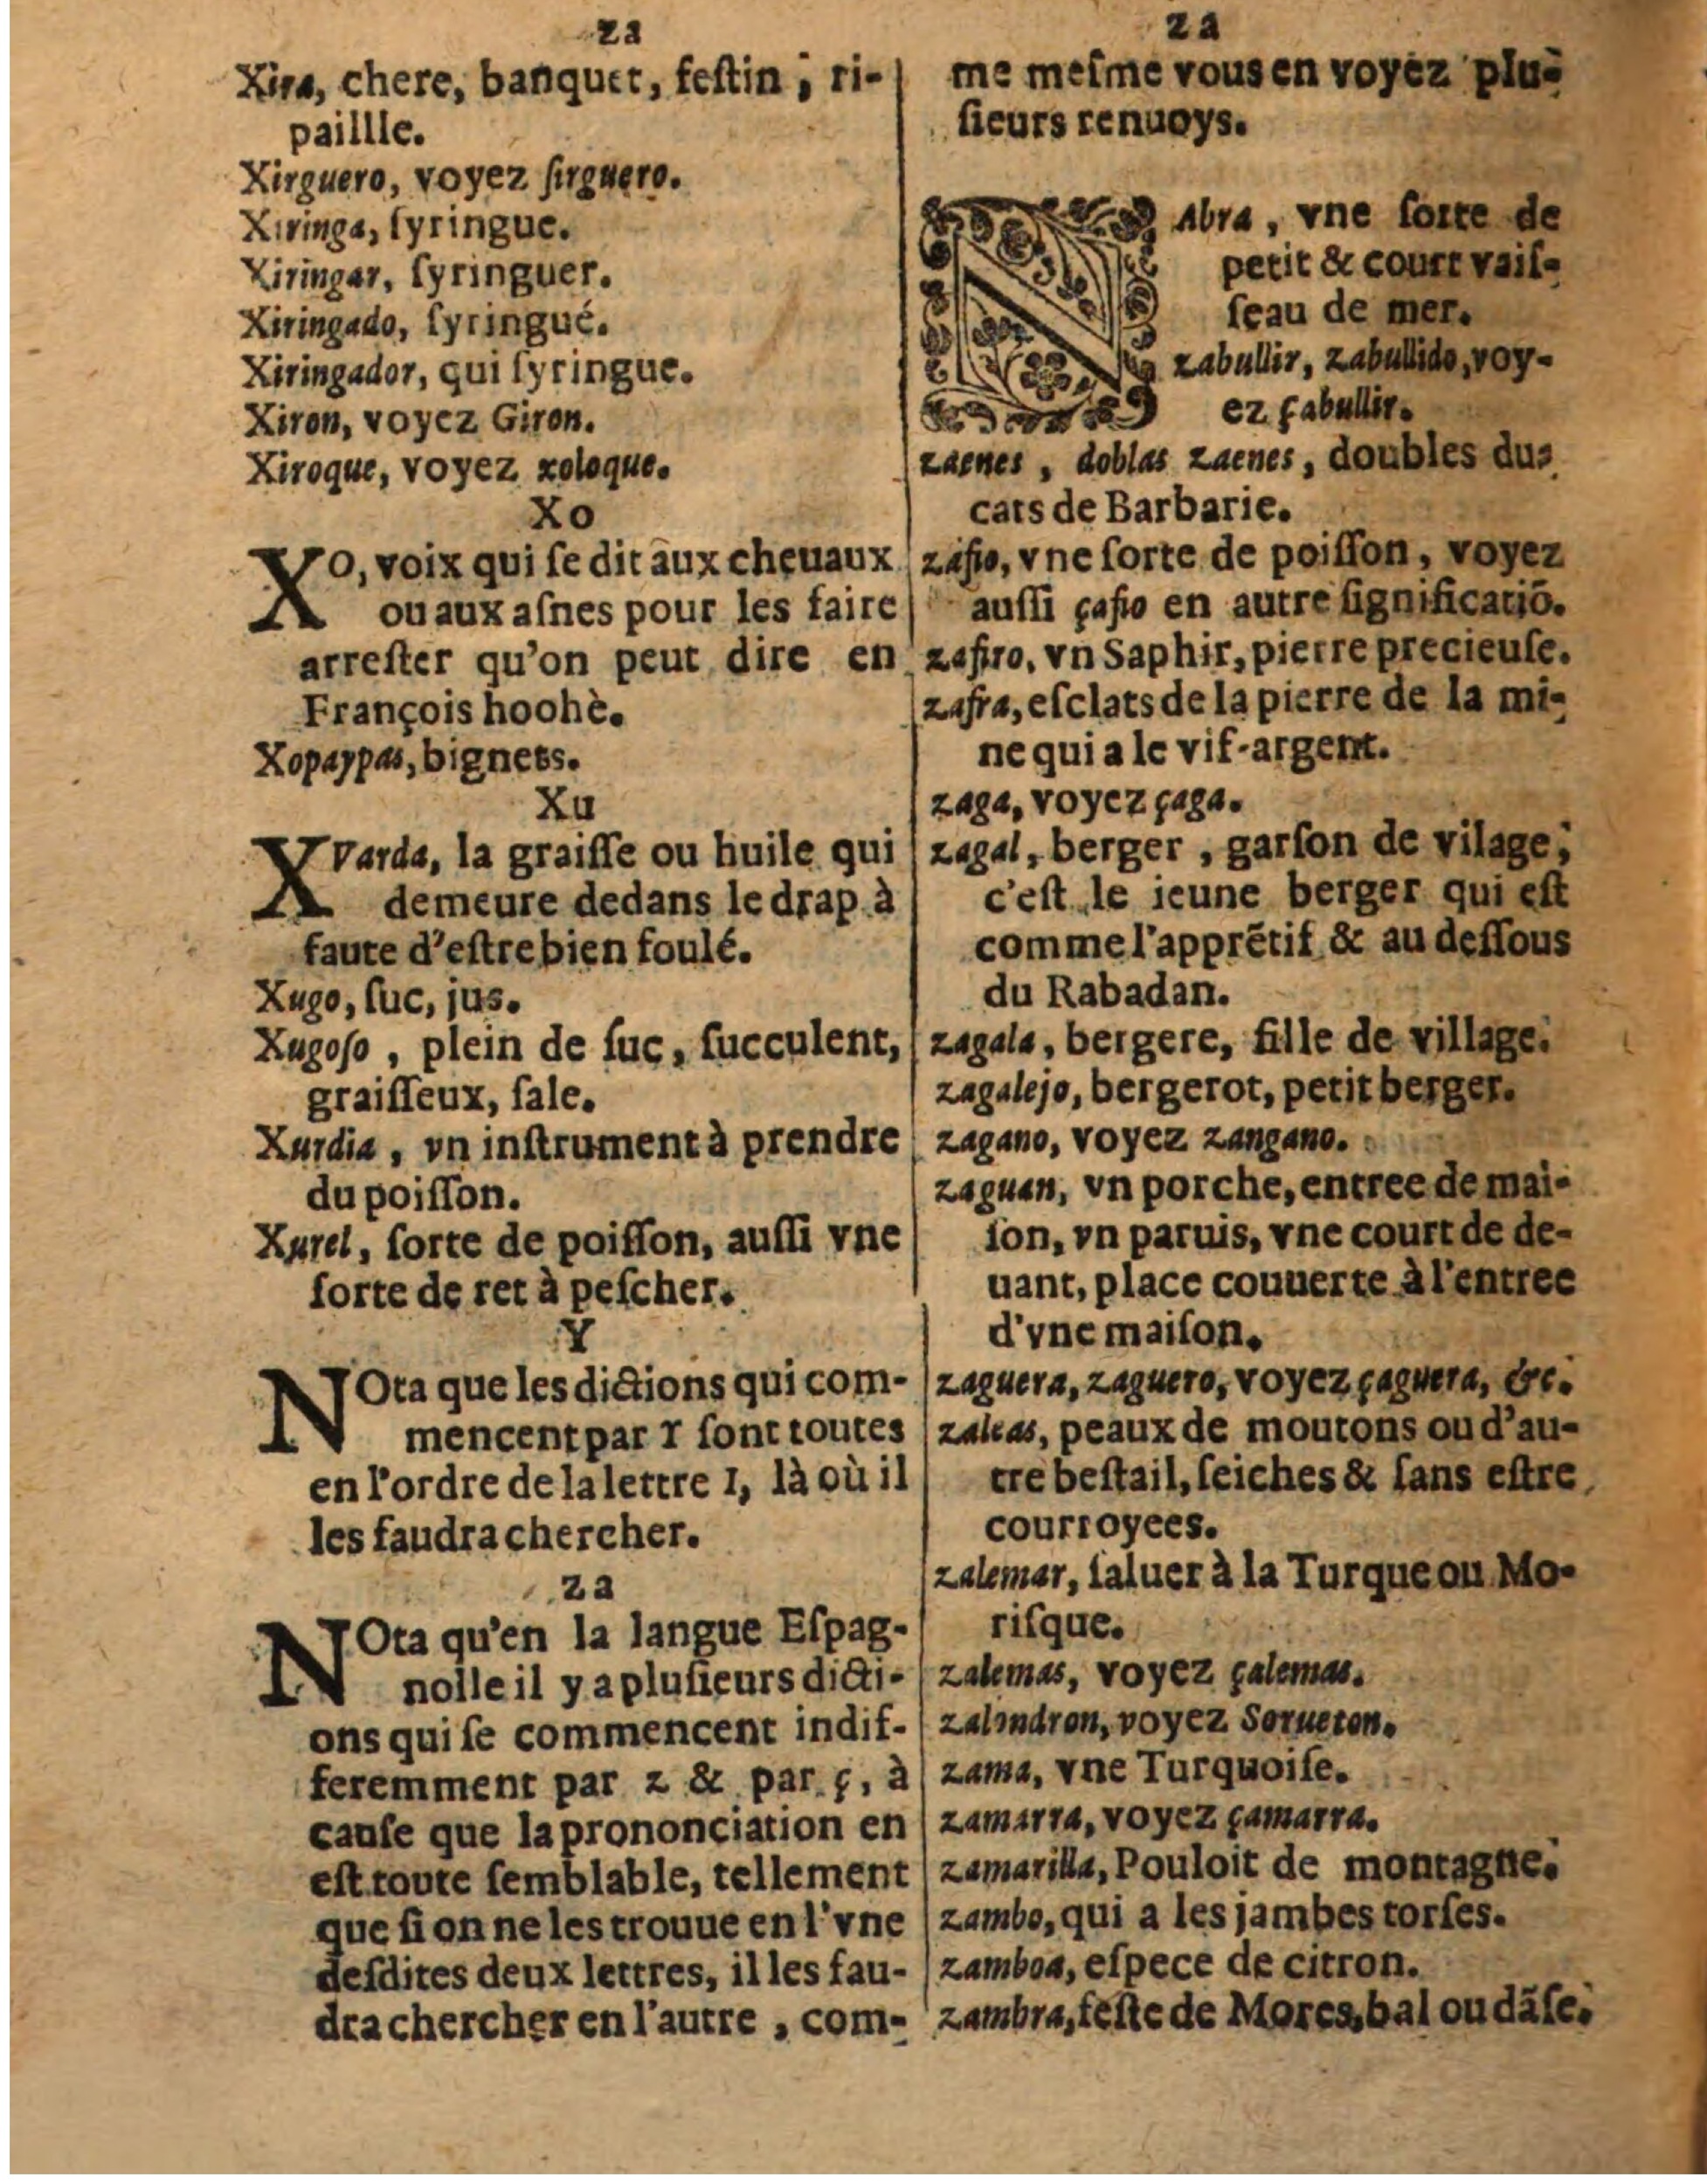 za
Xira, chere, banquet, feſtin, ri-
paillle.
Xirguero, voyez ſirguero.
Xiringa, ſyringue.
Xiringar, ſyringuer.
Xiringado, ſyringué.
Xiringador, qui ſyringue.
Xiron, voyez Giron.
Xiroque, voyez xoloque.
Xo
XO, voix qui ſe dit aux cheuaux
ou aux aſnes pour les faire
arreſter qu'on peut dire en
François hoohè.
Xopaypas, bignets.
Xu
XVarda, la graiſſe ou huile qui
demeure dedans le drap à
faute d'eſtre bien foulé.
Xugo, ſuc, jus.
Xugoſo, plein de ſuc, ſucculent,
graiſſeux, ſale.
Xurdia, vn inſtrument à prendre
du poiſſon.
Xurel, ſorte de poiſſon, auſſi vne
ſorte de ret à peſcher.
Y
NOta que les dictions qui com-
mencent par Y ſont toutes
en l'ordre de la lettre I, là où il
les faudra chercher.
za
NOta qu'en la langue Eſpag-
nolle il y a pluſieurs dicti-
ons qui ſe commencent indif-
feremment par z & par ç, à
cauſe que la prononciation en
eſt toute ſemblable, tellement
que ſi on ne les trouue en l'vne
deſdites deux lettres, il les fau-
dra chercher en l'autre, com-
za
me meſme vous en voyez plu-
ſieurs renuoys.
ZAbra, vne ſorte de
petit & court vaiſ-
ſeau de mer.
zabullir, zabullido, voy-
ez çabullir.
zaenes, doblas zaenes, doubles du-
cats de Barbarie.
zafio, vne ſorte de poiſſon, voyez
auſſi çafio en autre ſignificatiõ.
zafiro, vn Saphir, pierre precieuſe.
zafra, eſclats de la pierre de la mi-
ne qui a le vif-argent.
zaga, voyez çaga.
zagal, berger, garſon de vilage,
c'eſt le ieune berger qui eſt
comme l'apprẽtif & au deſſous
du Rabadan.
zagala, bergere, fille de village.
zagalejo, bergerot, petit berger.
zagano, voyez zangano.
zaguan, vn porche, entree de mai-
ſon, vn paruis, vne court de de-
uant, place couuerte à l'entree
d'vne maiſon.
zaguera, zaguero, voyez çaguera, &c.
zaleas, peaux de moutons ou d'au-
tre beſtail, ſeiches & ſans eſtre
courroyees.
zalemar, ſaluer à la Turque ou Mo-
riſque.
zalemas, voyez çalemas.
zalondron, voyez Sorueton.
zama, vne Turquoiſe.
zamarra, voyez çamarra.
zamarilla, Pouloit de montagne.
zambo, qui a les jambes torſes.
zamboa, eſpece de citron.
zambra, feſte de Mores, bal ou dãſe.